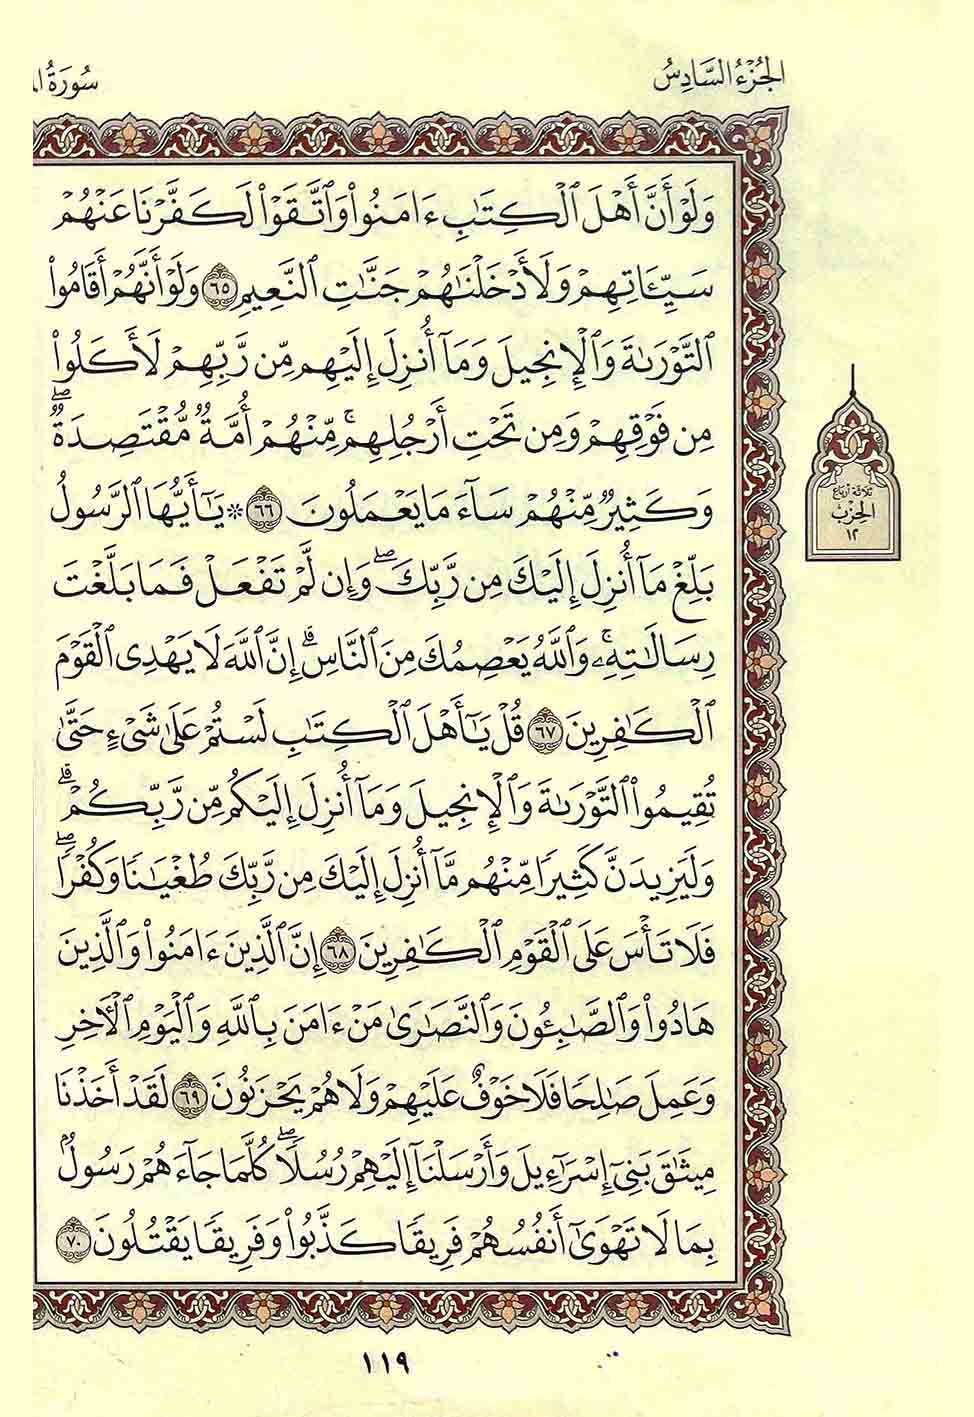 الجزء السادس
سورة
وَلَوْ أَنَّ أَهْلَ ٱلْكِتَٰبِ ءَامَنُوا۟ وَٱتَّقَوْا۟ لَكَفَّرْنَا عَنْهُمْ
سَيِّـَٔاتِهِمْ وَلَأَدْخَلْنَٰهُمْ جَنَّٰتِ ٱلنَّعِيمِ ٦٥ وَلَوْ أَنَّهُمْ أَقَامُوا۟
ٱلتَّوْرَىٰةَ وَٱلْإِنجِيلَ وَمَآ أُنزِلَ إِلَيْهِم مِّن رَّبِّهِمْ لَأَكَلُوا۟
مِن فَوْقِهِمْ وَمِن تَحْتِ أَرْجُلِهِم ۚ مِّنْهُمْ أُمَّةٌ مُّقْتَصِدَةٌ ۖ
وَكَثِيرٌ مِّنْهُمْ سَآءَ مَا يَعْمَلُونَ ٦٦ * يَٰٓأَيُّهَا ٱلرَّسُولُ
بَلِّغْ مَآ أُنزِلَ إِلَيْكَ مِن رَّبِّكَ ۖ وَإِن لَّمْ تَفْعَلْ فَمَا بَلَّغْتَ
رِسَالَتَهُۥ ۚ وَٱللَّهُ يَعْصِمُكَ مِنَ ٱلنَّاسِ ۗ إِنَّ ٱللَّهَ لَا يَهْدِى ٱلْقَوْمَ
ٱلْكَٰفِرِينَ ٦٧ قُلْ يَٰٓأَهْلَ ٱلْكِتَٰبِ لَسْتُمْ عَلَىٰ شَىْءٍ حَتَّىٰ
تُقِيمُوا۟ ٱلتَّوْرَىٰةَ وَٱلْإِنجِيلَ وَمَآ أُنزِلَ إِلَيْكُم مِّن رَّبِّكُمْ ۗ
وَلَيَزِيدَنَّ كَثِيرًا مِّنْهُم مَّآ أُنزِلَ إِلَيْكَ مِن رَّبِّكَ طُغْيَٰنًا وَكُفْرًا ۖ
فَلَا تَأْسَ عَلَى ٱلْقَوْمِ ٱلْكَٰفِرِينَ ٦٨ إِنَّ ٱلَّذِينَ ءَامَنُوا۟ وَٱلَّذِينَ
هَادُوا۟ وَٱلصَّٰبِـُٔونَ وَٱلنَّصَٰرَىٰ مَنْ ءَامَنَ بِٱللَّهِ وَٱلْيَوْمِ ٱلْءَاخِرِ
وَعَمِلَ صَٰلِحًا فَلَا خَوْفٌ عَلَيْهِمْ وَلَا هُمْ يَحْزَنُونَ ٦٩ لَقَدْ أَخَذْنَا
مِيثَٰقَ بَنِىٓ إِسْرَٰٓءِيلَ وَأَرْسَلْنَآ إِلَيْهِمْ رُسُلًا ۖ كُلَّمَا جَآءَهُمْ رَسُولٌۢ
بِمَا لَا تَهْوَىٰٓ أَنفُسُهُمْ فَرِيقًا كَذَّبُوا۟ وَفَرِيقًا يَقْتُلُونَ ٧٠
ثلاثة أرباع
الحزب
١٢
١١٩